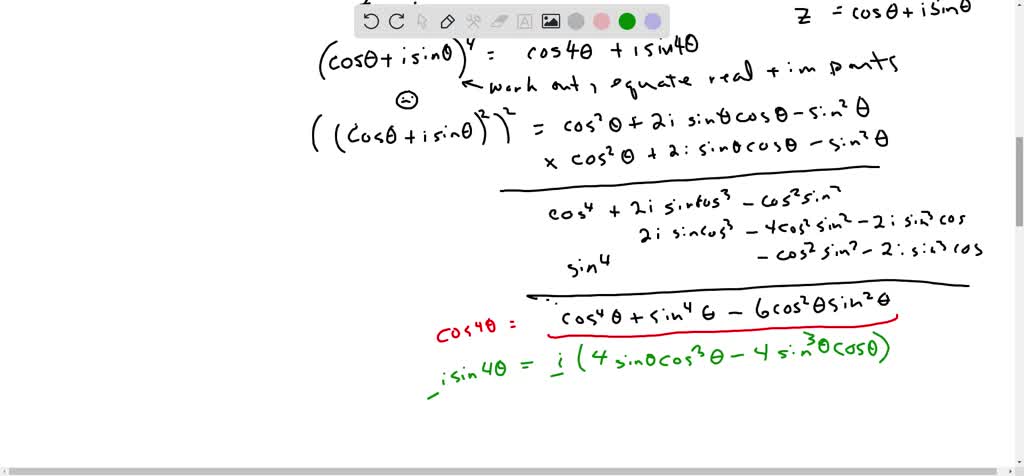 z = cosθ + i sinθ
(cosθ + i sinθ)^4 = cos4θ + i sin4θ
work out, equate real + im parts
((cosθ + i sinθ)²)² = cos²θ + 2i sinθ cosθ - sin²θ
x cos²θ + 2i sinθ cosθ - sin²θ
cos⁴ + 2i sin cos³ - cos² sin²
2i sin cos³ - 4cos² sin² - 2i sin³ cos
sin⁴ - cos² sin² - 2i sin³ cos
cos4θ = cos⁴θ + sin⁴θ - 6cos²θ sin²θ
i sin4θ = i (4 sinθ cos³θ - 4 sin³θ cosθ)